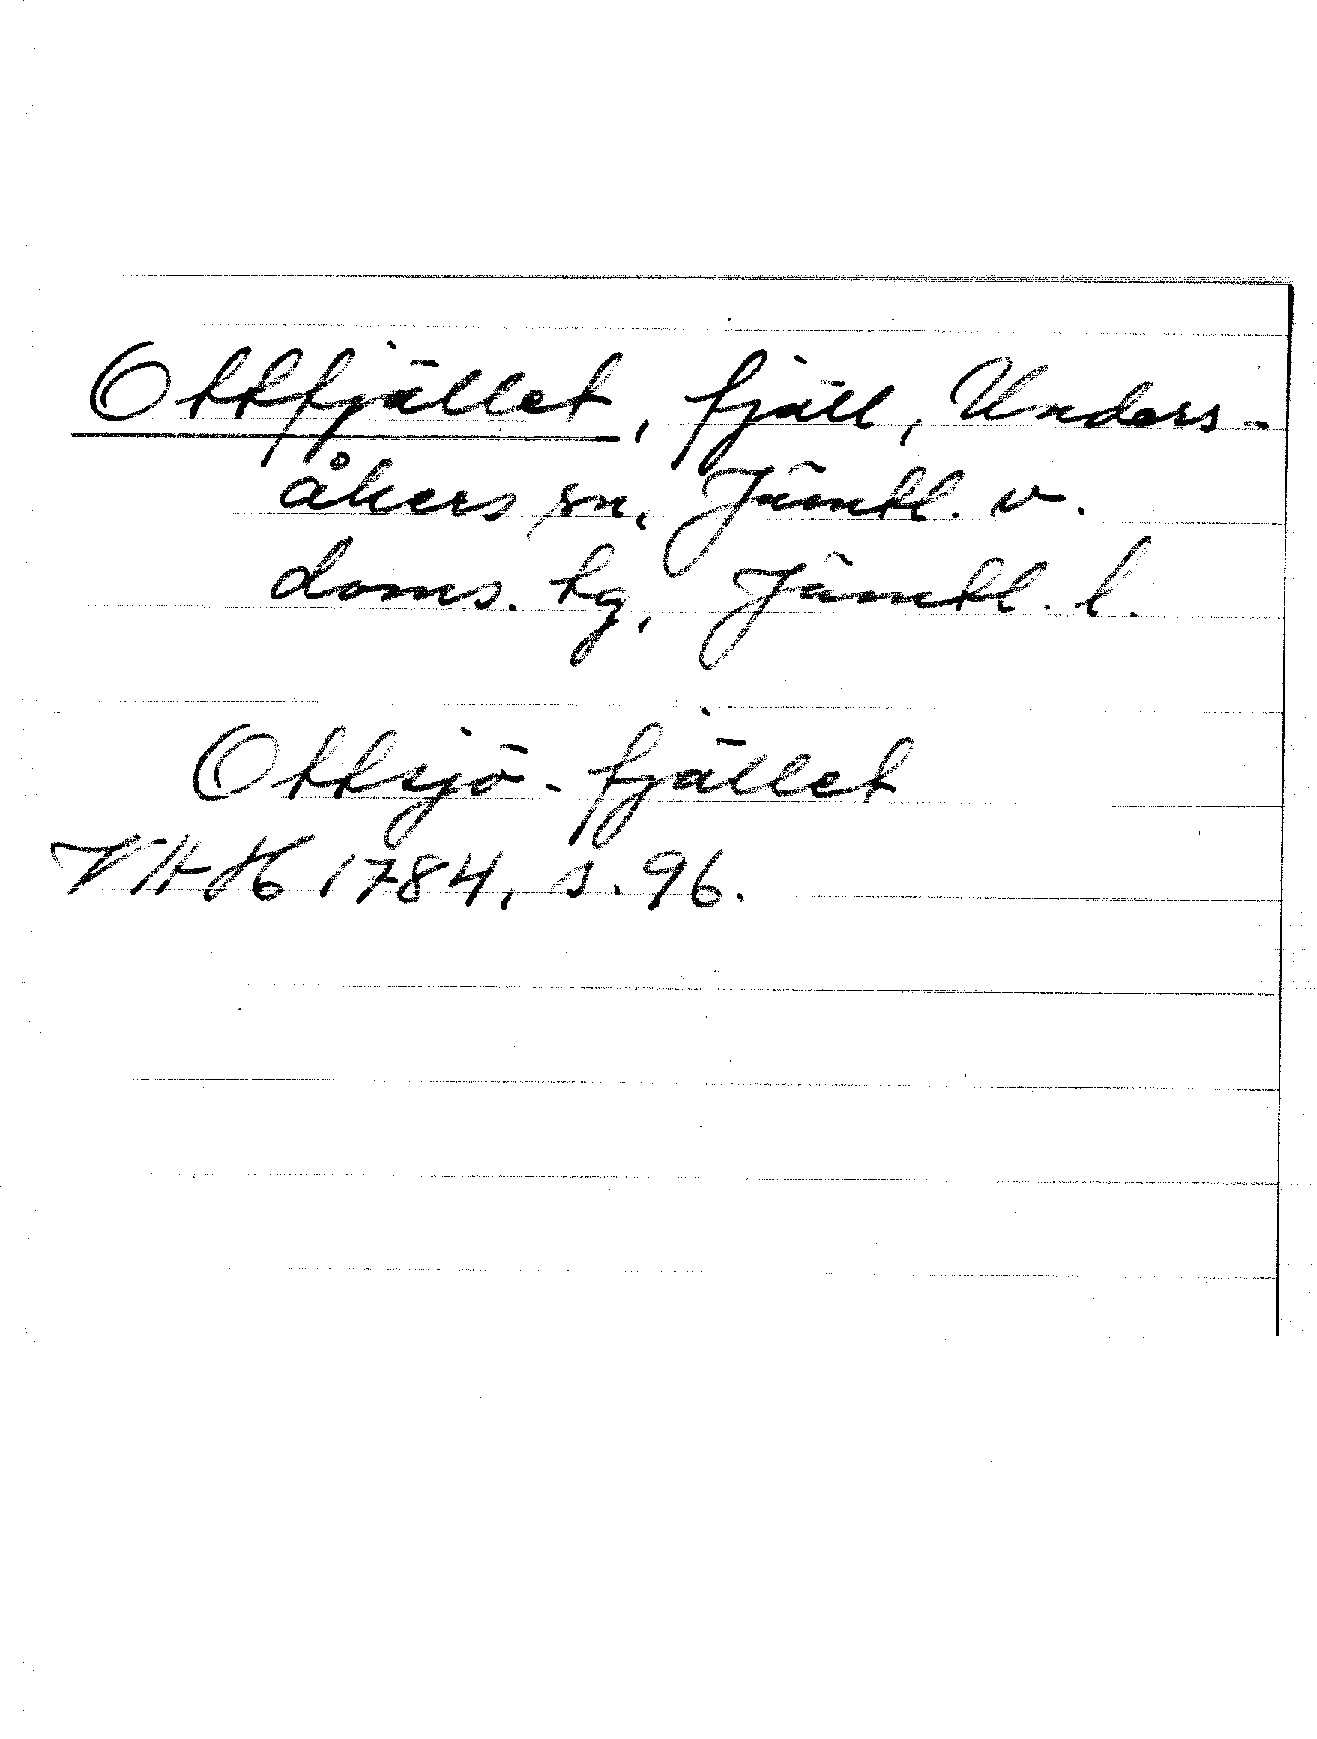 Ottfjället, fjäll, Unders-
åkers sn, Jämtl. v.
doms. tg, Jämtl. l.
Ottsjö-fjället
VHH 1784, s. 96.